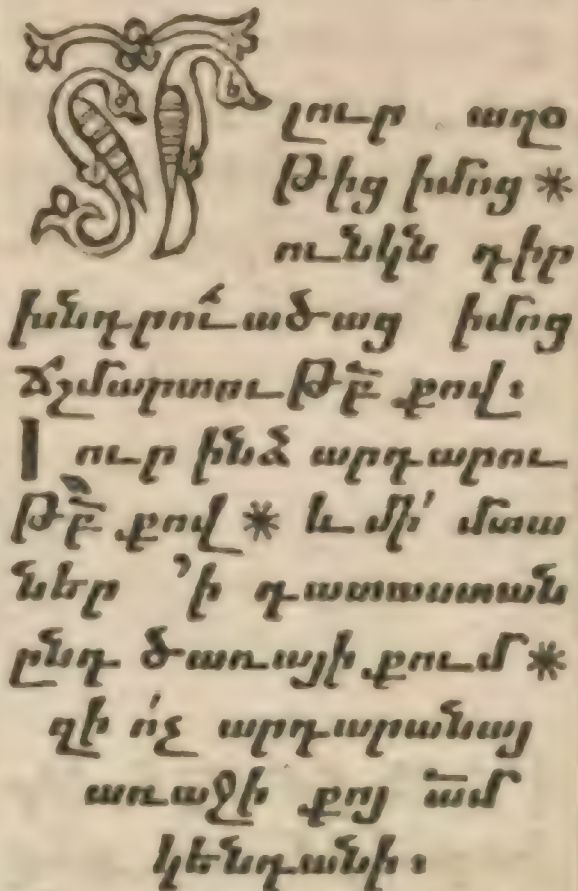 ՏՐ լուր աղօ
թից իմոց *
ունկն դիր
խնդրուածաց իմոց
ճշմարտութբ՟ քով։
Լուր ինձ արդարու
թբ՟ քով * և մի՛ մտա
ներ ՚ի դատաստան
ընդ ծառայի քում *
զի ո՛չ արդարանայ
առաջի քոյ ամ՟
կենդանի։